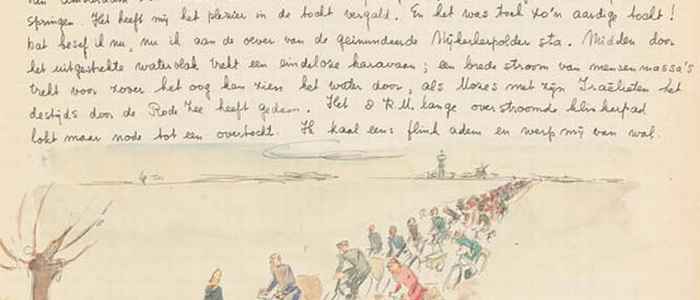 springen. Het heeft mij het plezier in de tocht vergald. En het was toch zo'n aardige tocht!
Dat besef ik nu, nu ik aan de oever van de geinundeerde Nijkerkerpolder sta. Midden door
het uitgestrekte watervlak trekt een eindeloze karavaan; een brede stroom van mensenmassa's
trekt voor zover het oog kan zien het water door, als Mozes met zijn Israëlieten het
destijds door de Rode Zee heeft gedaan. Het 2 K.M. lange overstroomde klinkerpad
lokt maar node tot een overtocht. Ik haal eens flink adem en werp mij van wal.